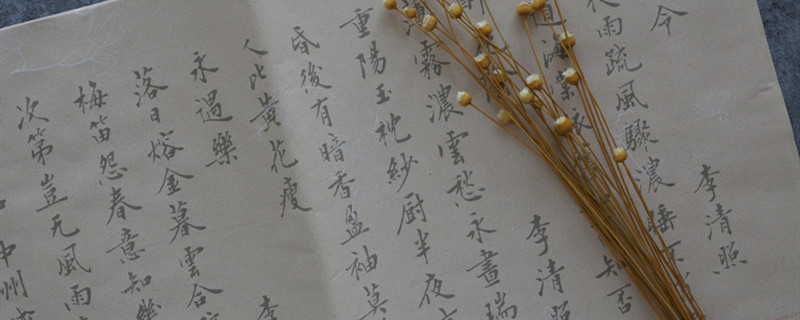 令 李清照
雨疏風驟濃睡不
道海棠依 知否
李清照
薄霧濃雲愁永晝瑞
重陽玉枕紗厨半夜
昏後有暗香盈袖莫
人比黃花瘦
永遇樂 李
落日熔金暮雲合
梅笛怨春意知幾
次第豈无風雨
中州